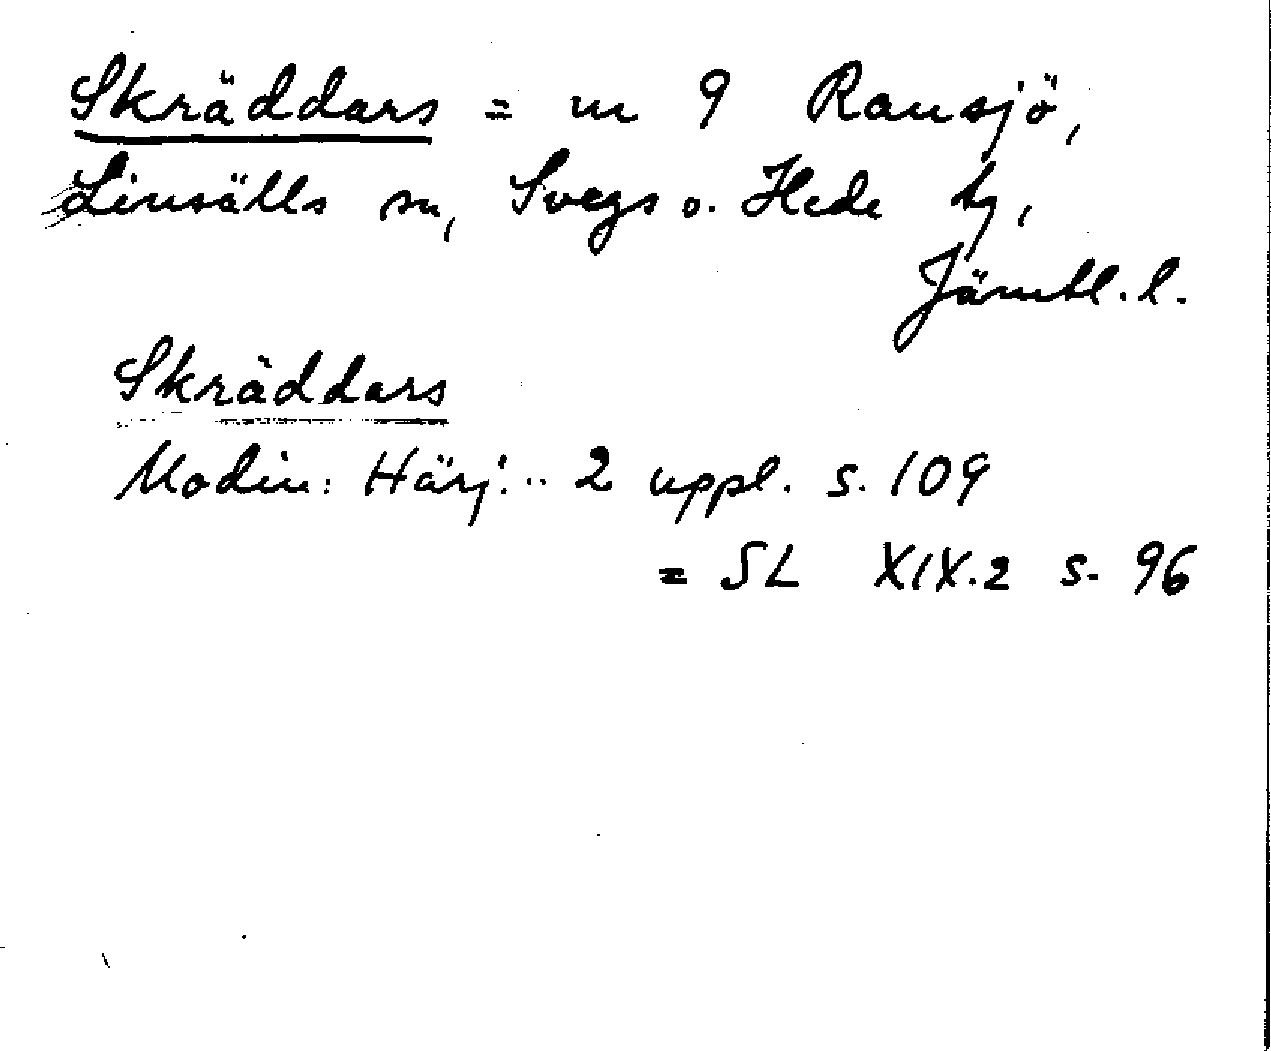 Skräddars = nr 9 Ransjö,
Linsälls sn, Svegs o. Hede tg,
Jämtl. l.
Skräddars
Modin: Härj... 2 uppl. s. 109
= SL XIX.2 s. 96